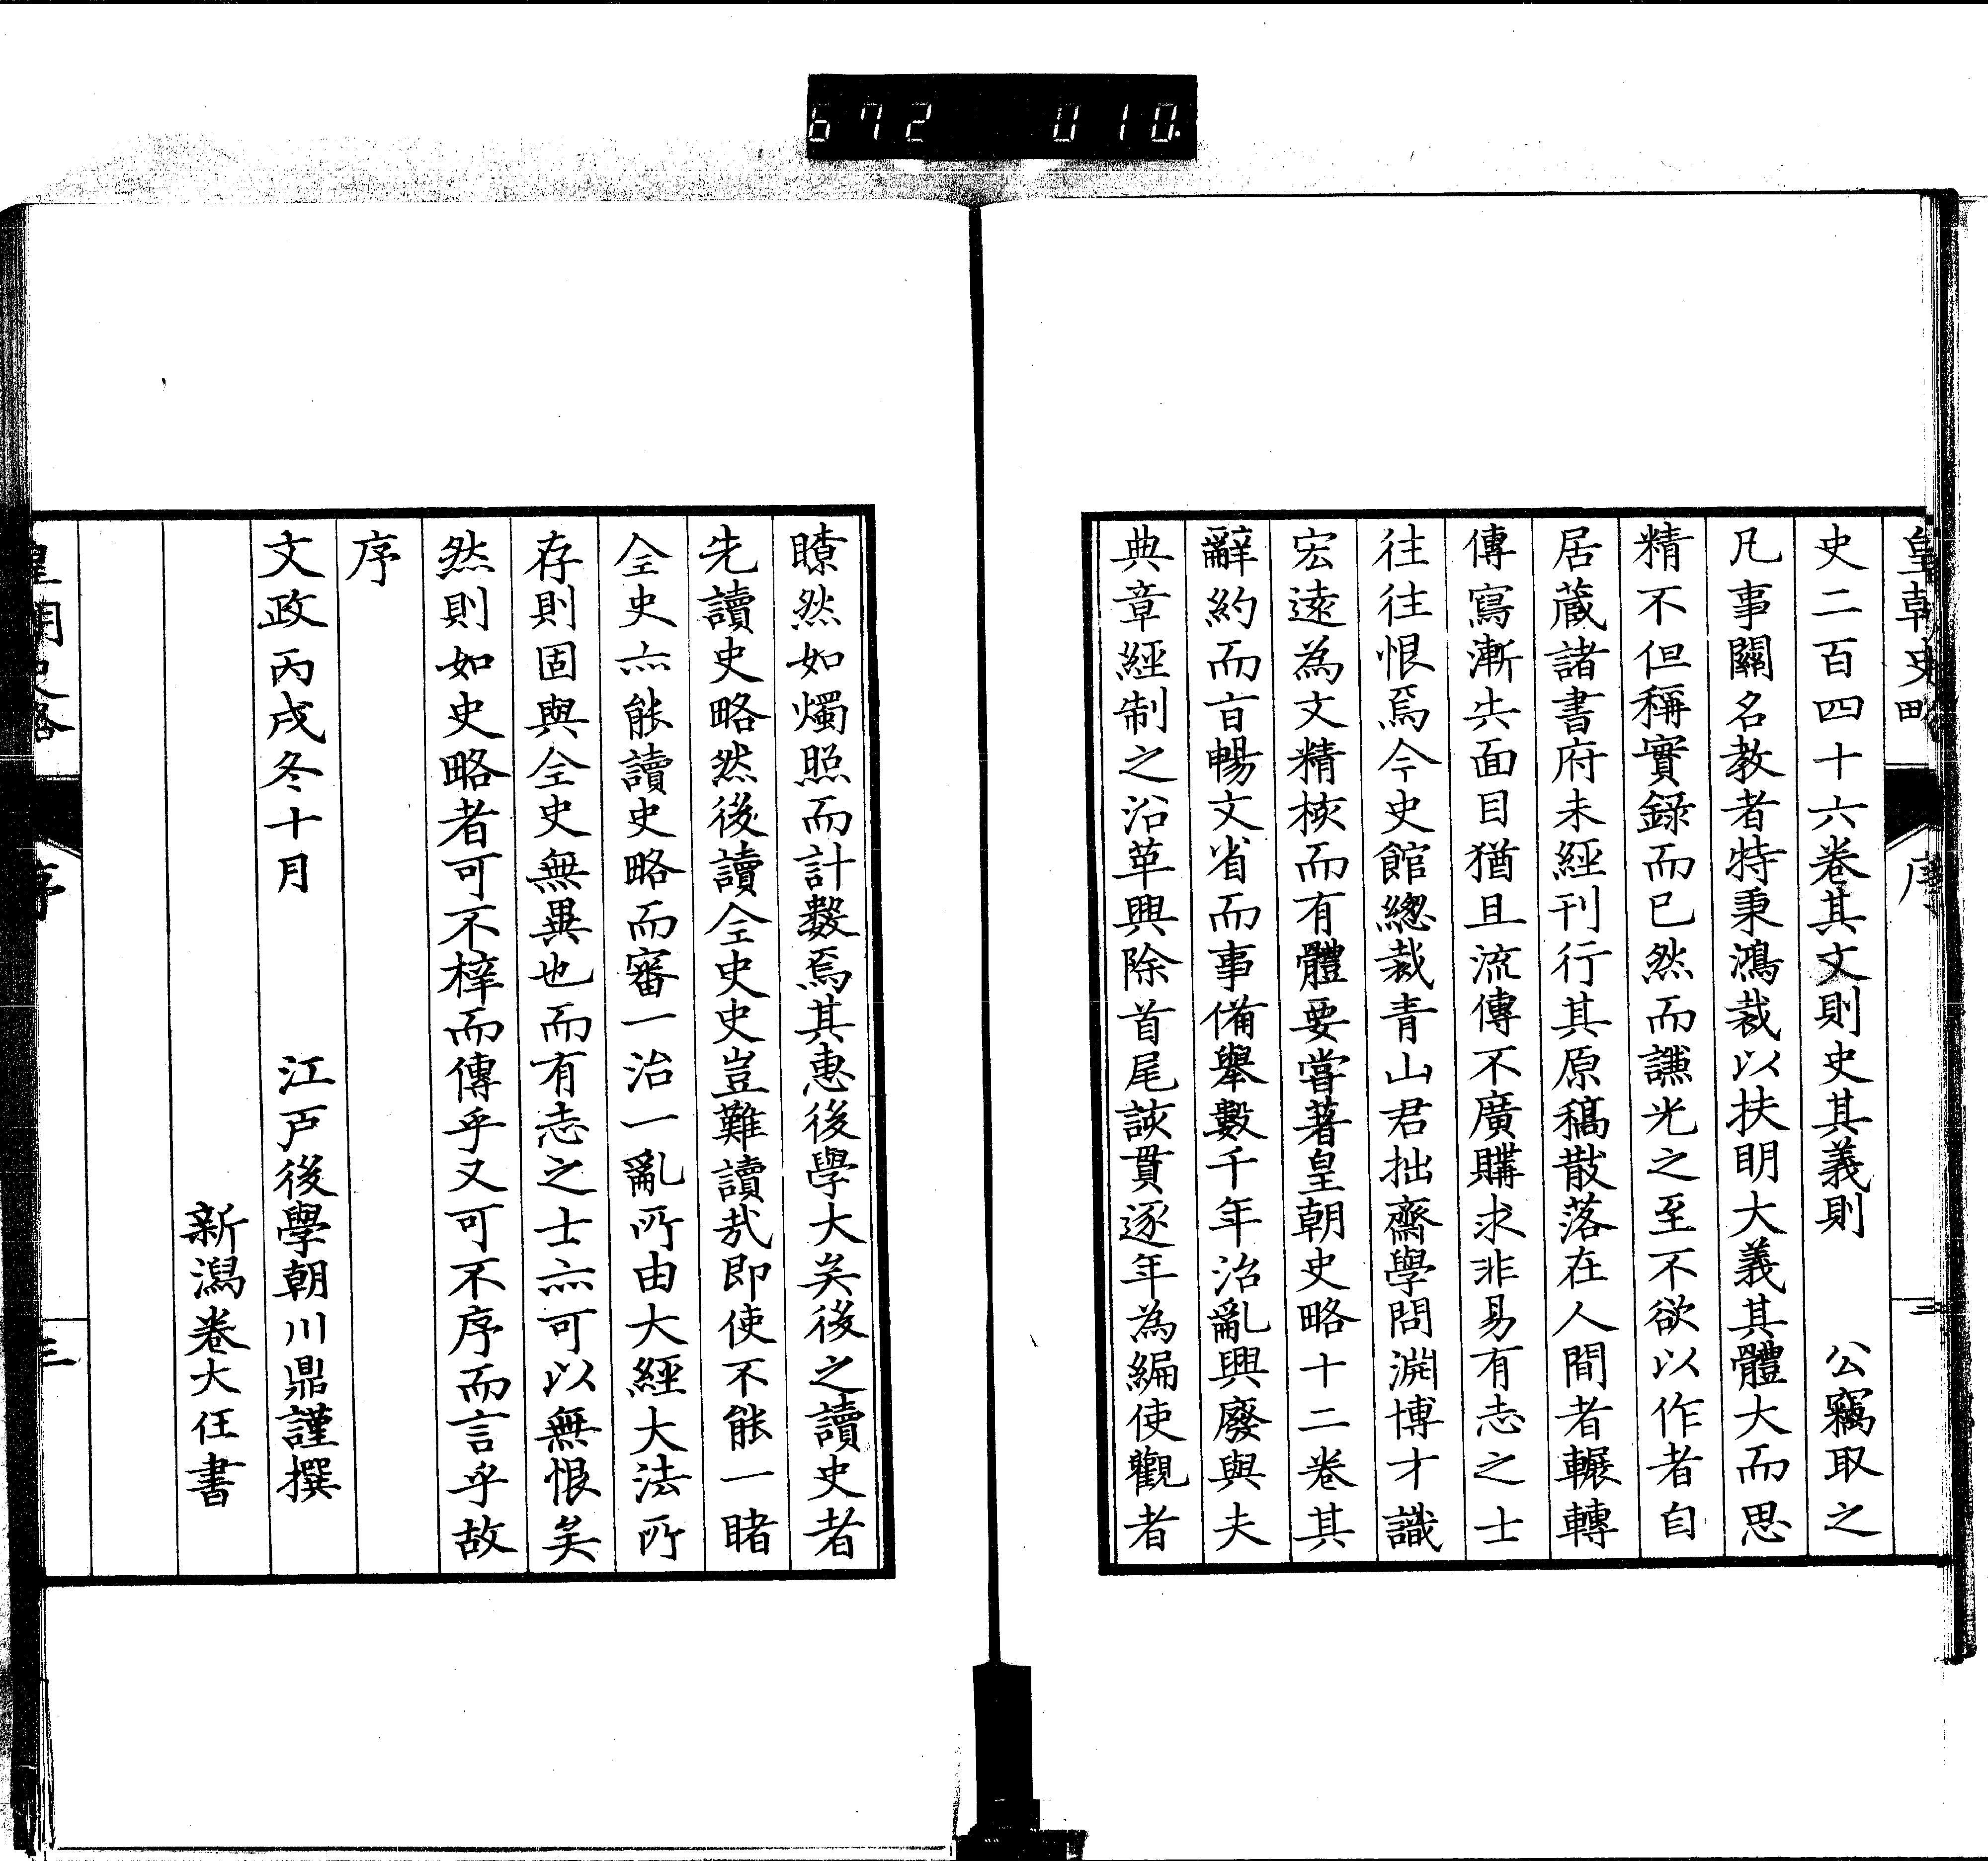 672 010.
皇朝史略 序 二
史二百四十六卷其文則史其義則 公竊取之
凡事關名教者特秉鴻裁以扶明大義其體大而思
精不但稱實錄而已然而謙光之至不欲以作者自
居蔵諸書府未經刊行其原稿散落在人間者輾轉
傳寫漸失面目猶且流傳不廣購求非易有志之士
往往恨焉今史館總裁青山君拙齋學問淵博才識
宏遠為文精核而有體要嘗著皇朝史略十二卷其
辭約而旨暢文省而事備舉數千年治亂興廢與夫
典章經制之沿革興除首尾該貫逐年為編使觀者
瞭然如燭照而計數焉其惠後學大矣後之讀史者
先讀史略然後讀全史史豈難讀哉即使不能一睹
全史亦能讀史略而審一治一亂所由大經大法所
存則固與全史無異也而有志之士亦可以無恨矣
然則如史略者可不梓而傳乎又可不序而言乎故
序
文政丙戌冬十月 江戸後學朝川鼎謹撰
新潟卷大任書
皇朝史略 序 三